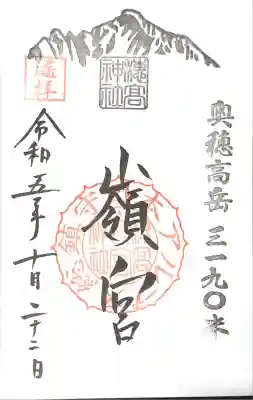 奥穂高岳 三一九〇米
穂髙
神社
嶺宮
遥拝
令和五年 十月二十二日